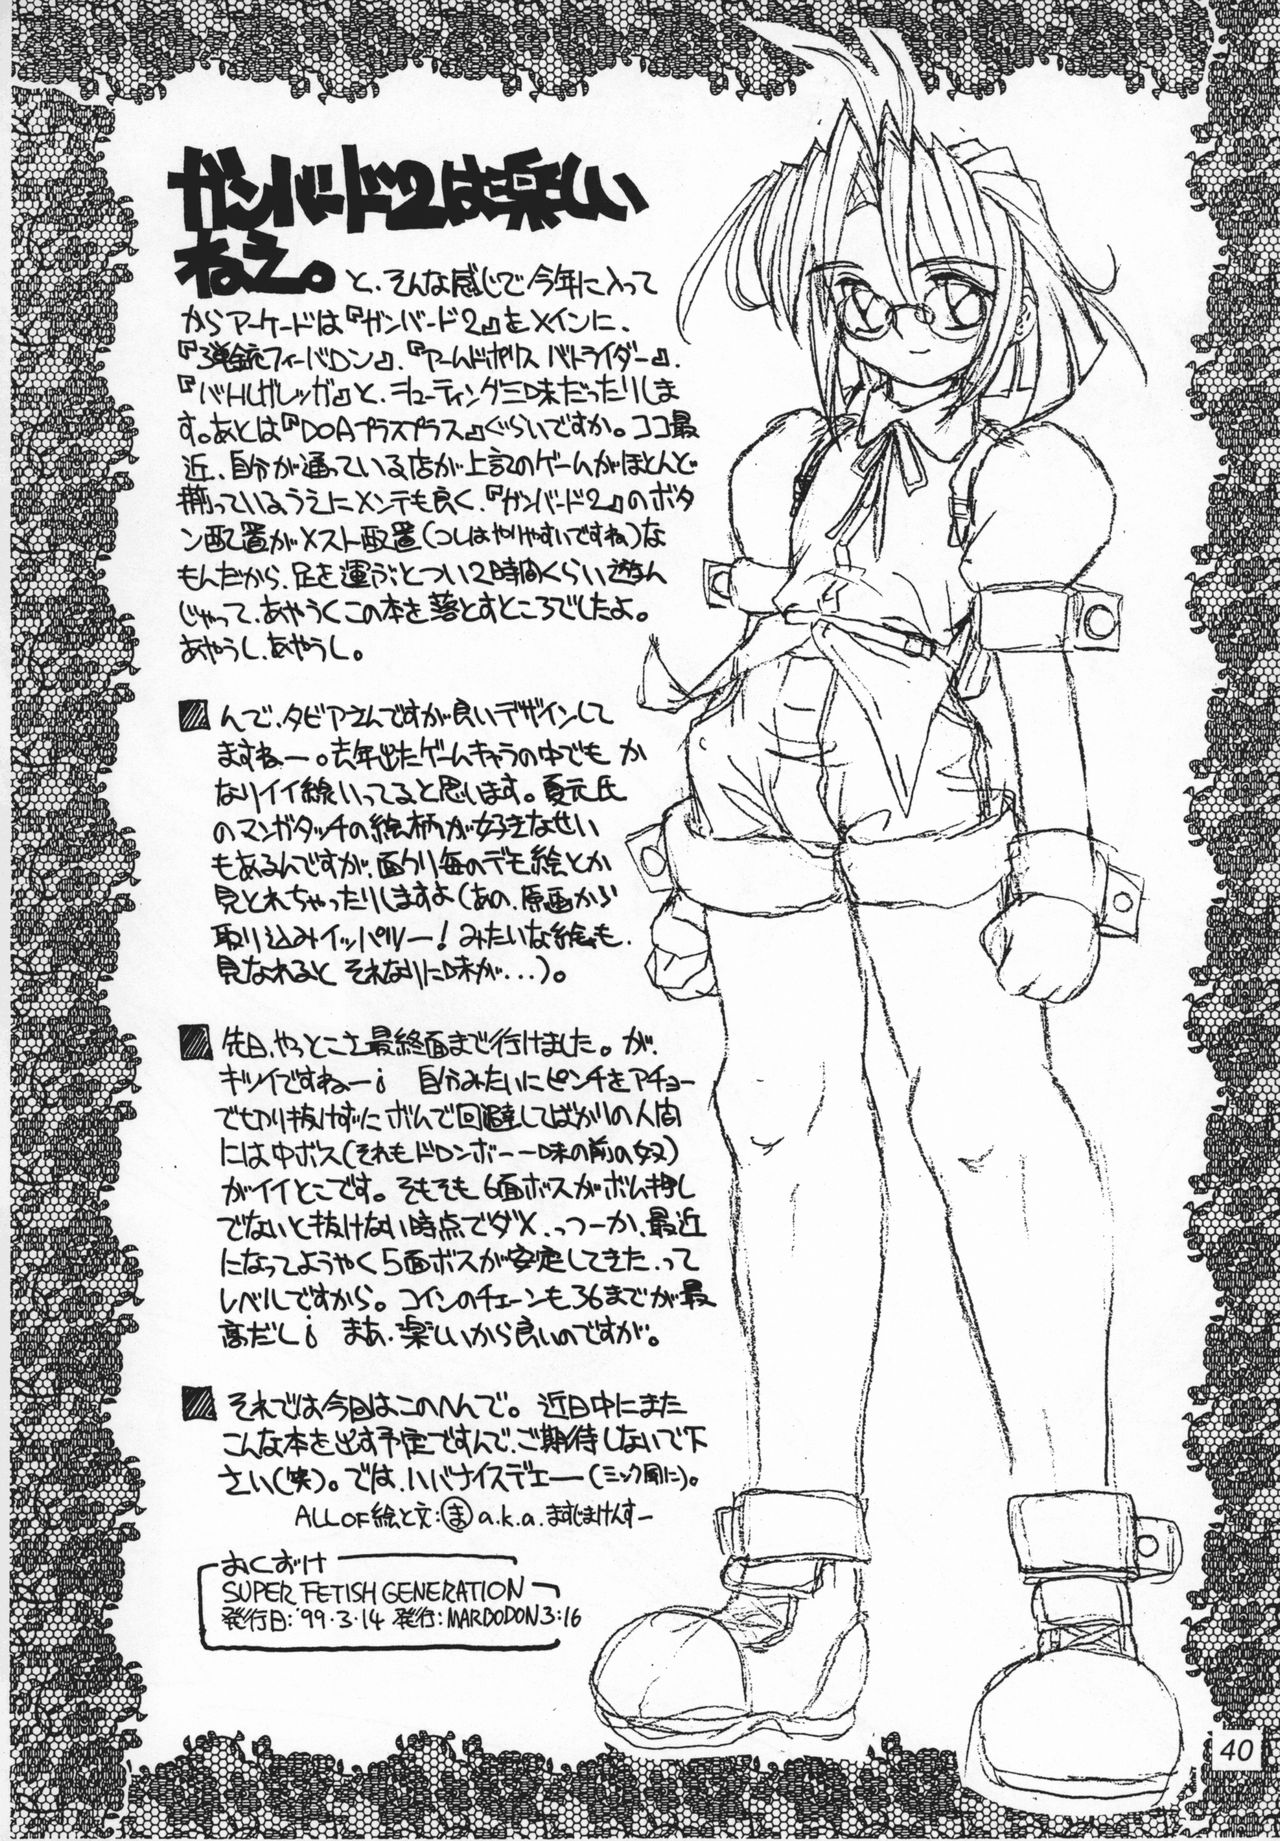 ガンバード2は楽しい
ねえ。と、そんな感じで今年に入って
からアーケードは『ガンバード2』をメインに、
『弾銃フィーバロン』、『アームドポリス バトライダー』、
『バトルガレッガ』と、シューティング三昧だったりしま
す。あとは『DOAプラスプラス』ぐらいですか。ココ最
近、自分が通っている店が上記のゲームがほとんど
揃っているうえにメンテも良く、『ガンバード2』のボタ
ン配置がメスト配置(つしはやりやすいですね)な
もんだから、足を運ぶとつい2時間くらい遊ん
じゃって、あやうくこの本を落とすところでしたよ。
あやうし、あやうし。
んで、タビアさんですが良いデザインして
ますねー。去年出たゲームキャラの中でも か
なりイイ線いってると思います。夏元氏
のマンガタッチの絵柄が好きなせい
もあるんですが、面クリ毎のデモ絵とか
見とれちゃったりしますよ(あの、原画から
取り込みイッパツー!みたいな絵も、
見なれると それなりに味が...)。
先日、やっとこさ最終面まで行けました。が、
キツイですねー¡ 自分みたいにピンチをアチョー
で切り抜けずにボムで回避してばかりの人間
には中ボス(それもドロンボー一味の前の奴)
がイイとこです。そもそも6面ボスがボム押し
でないと抜けない時点でダメ、っつーか、最近
になってようやく5面ボスが安定してきた、って
レベルですから。コインのチェーンも36までが最
高だし¡ まあ、楽しいから良いのですが。
それでは今日はこのへんで。近日中にまた
こんな本を出す予定ですんで、ご期待しないで下
さい(笑)。では、ハバナイスデェー(ミンク風に)。
ALL OF 絵と文:ま a.k.a. ますじまけんすー
おくづけ
SUPER FETISH GENERATION
発行日:'99.3.14 発行:MARDODON 3:16
40